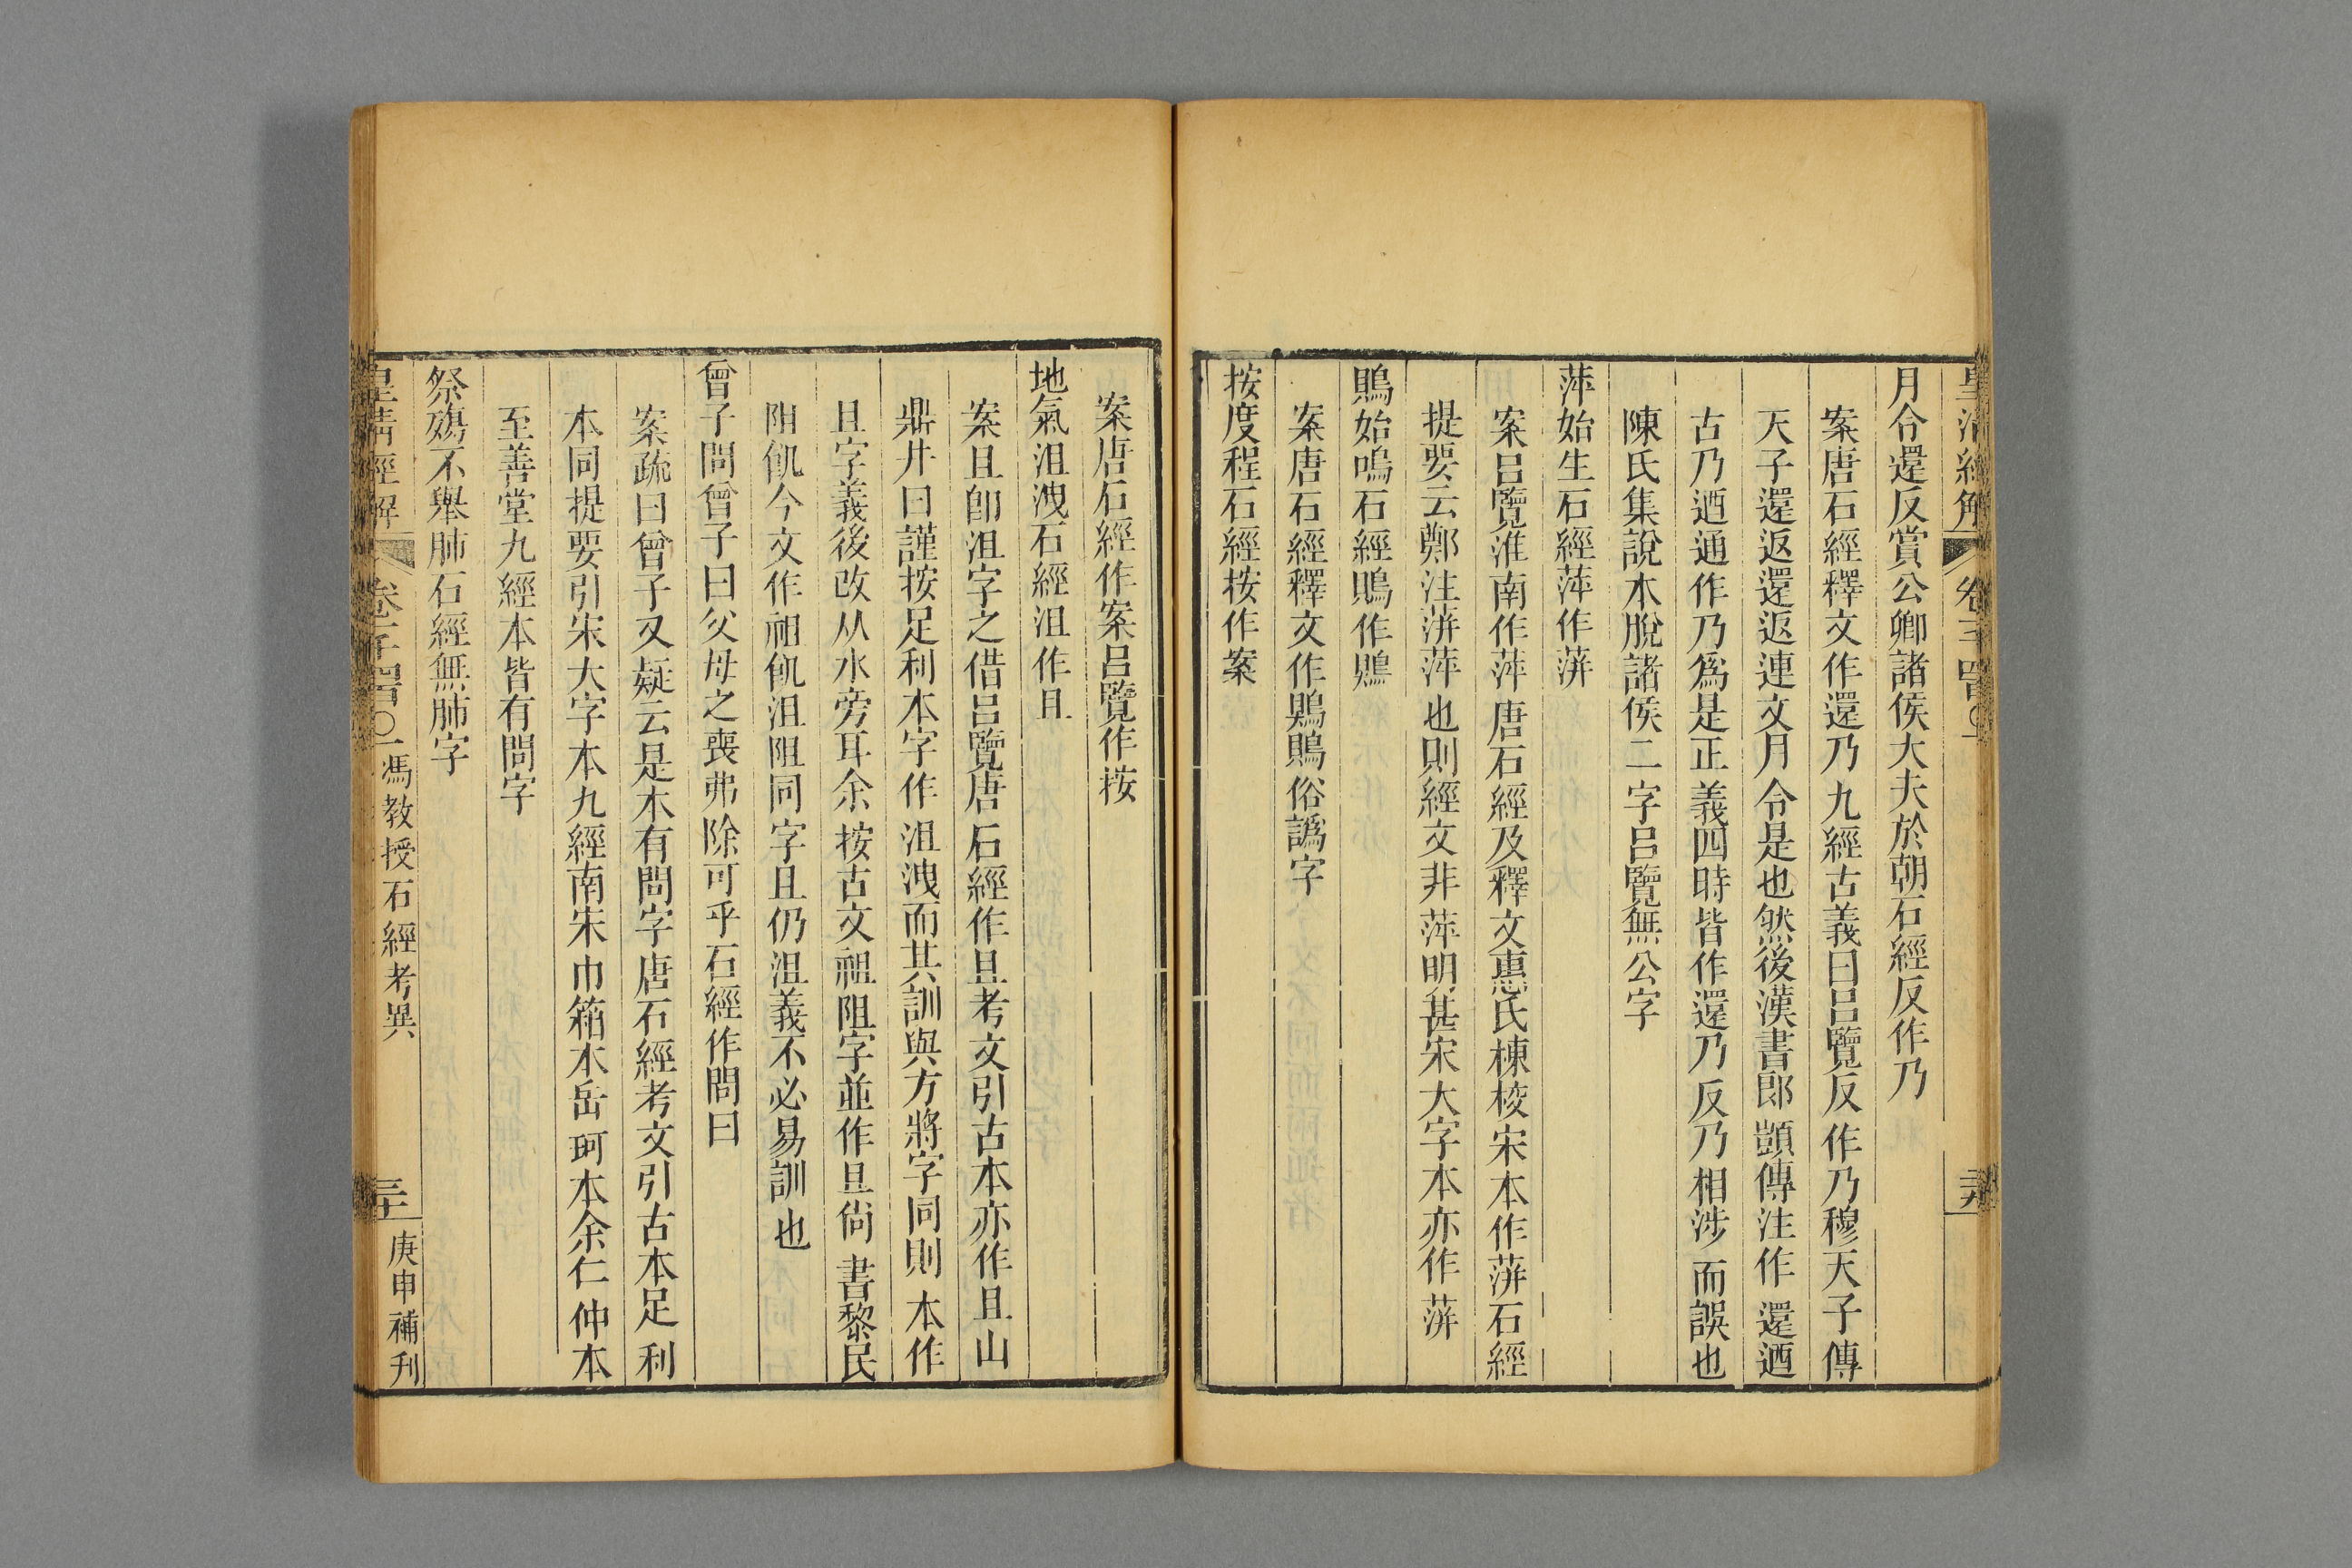 皇清經解
月令還反賞公卿諸侯大夫於朝石經反作乃
案唐石經釋文作還乃九經古義曰呂覽反作乃穆天子傳
天子還返還返連文月令是也然後漢書郎顗傳注作還迺
古乃迺通作乃爲是正義四時皆作還乃反乃相涉而誤也
陳氏集說本脫諸侯二字呂覽無公字
萍始生石經萍作蓱
案呂覽淮南作萍唐石經及釋文惠氏棟校宋本作蓱石經
提要云鄭注蓱萍也則經文非萍明甚宋大字本亦作蓱
鵙始鳴石經鵙作鶪
案唐石經釋文作鶪鵙俗譌字
按度程石經按作案
案唐石經作案呂覽作按
地氣沮洩石經沮作且
案且卽沮字之借呂覽唐石經作且考文引古本亦作且山
鼎井曰謹按足利本字作沮洩而其訓與方將字同則本作
且字義後改从水旁耳余按古文祖阻字並作且尙書黎民
阻飢今文作祖飢沮阻同字且仍沮義不必易訓也
曾子問曾子曰父母之喪弗除可乎石經作問曰
案疏曰曾子又疑云是本有問字唐石經考文引古本足利
本同提要引宋大字本九經南宋巾箱本岳珂本余仁仲本
至善堂九經本皆有問字
祭殤不舉肺石經無肺字
皇清經解 馮教授石經考異 庚申補刊